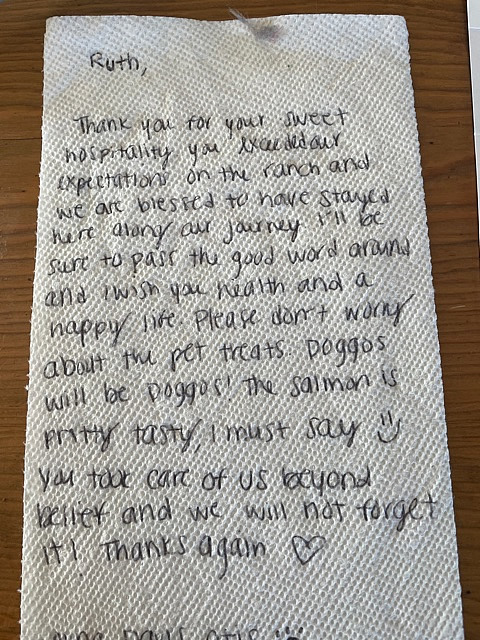 Ruth,
Thank you for your sweet
hospitality you exceeded our
expectations on the ranch and
we are blessed to have stayed
here along our journey. I'll be
sure to pass the good word around
and I wish you health and a
happy life. Please don't worry
about the pet treats. Doggos
will be Doggos! The salmon is
pretty tasty, I must say
You took care of us beyond
belief and we will not forget
it! Thanks again ♡